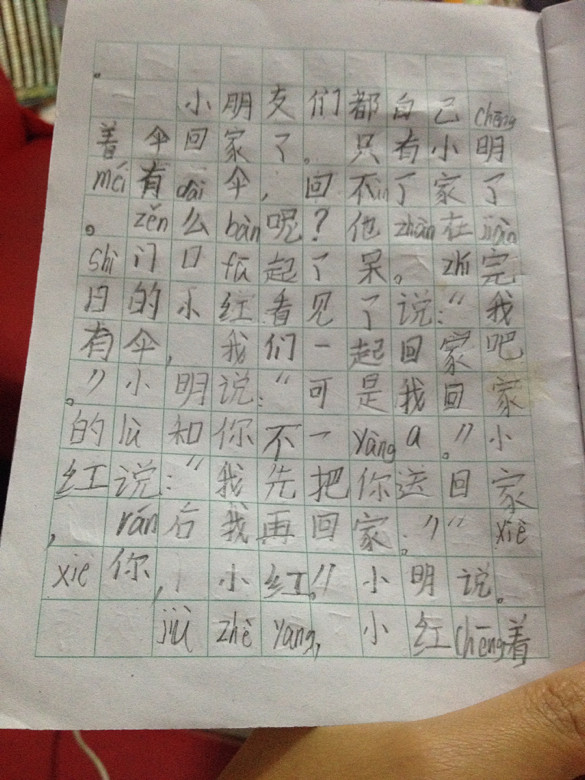 。
小朋友们都自己chēng
着伞回家了。只有小明
méi有dài伞,回不了家了
。zěn么bàn呢?他zhàn在jiào
shì门口fā起了呆。zhí完
日的小红看见了说:“我
有伞,我们一起回家吧
。”小明说:“可是我回家
的lù和你不一yàng a。”小
红说:“我先把你送回家
,rán后我再回家。”“xiè
xie你,小红。”小明说。
jiù zhè yàng,小红chēng着